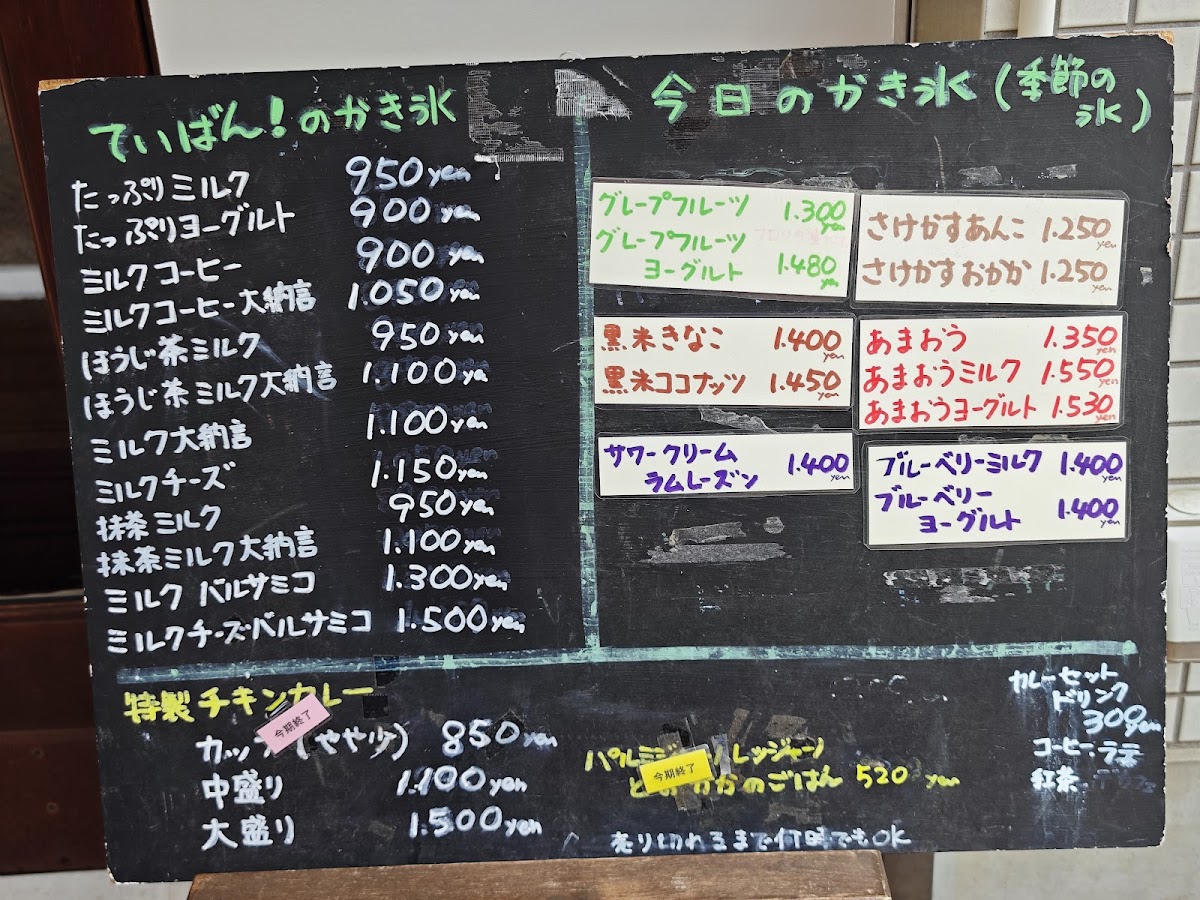 ていばん!のかき氷
たっぷりミルク 950yen
たっぷりヨーグルト 900yen
ミルクコーヒー 900yen
ミルクコーヒー大納言 1.050yen
ほうじ茶ミルク 950yen
ほうじ茶ミルク大納言 1.100ye
ミルク大納言 1.100yen
ミルクチーズ 1.150yen
抹茶ミルク 950yen
抹茶ミルク大納言 1.100yen
ミルクバルサミコ 1.300yen
ミルクチーズバルサミコ 1.500yen
今日のかき氷(季節の
氷)
グレープフルーツ 1.300yen
グレープフルーツ
ヨーグルト 1.480yen
黒米きなこ 1.400yen
黒米ココナッツ 1.450yen
サワークリーム
ラムレーズン 1.400yen
さけかすあんこ 1.250yen
さけかすおかか 1.250yen
あまおう 1.350yen
あまおうミルク 1.550yen
あまおうヨーグルト 1.530yen
ブルーベリーミルク 1.400yen
ブルーベリー
ヨーグルト 1.400yen
特製チキンカレー
今期終了
カップ(やや少) 850yen
中盛り 1.100yen
大盛り 1.500yen
今期終了
かのごはん 520 yen
売り切れるまで何時でもOK
カレーセット
ドリンク
300yen
コーヒー
紅茶